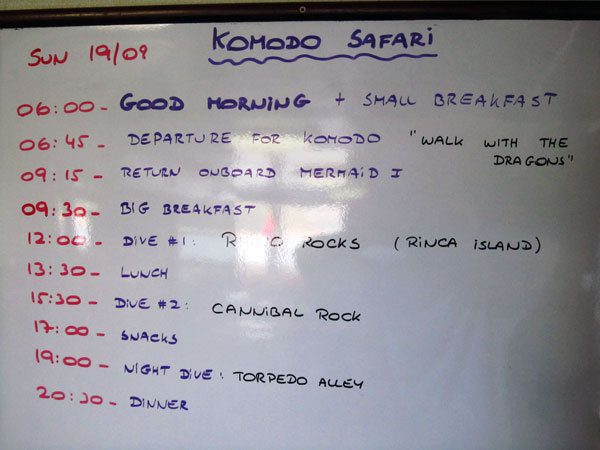 SUN 19/09 KOMODO SAFARI
06:00- GOOD MORNING + SMALL BREAKFAST
06:45- DEPARTURE FOR KOMODO "WALK WITH THE
DRAGONS"
09:15- RETURN ONBOARD MERMAID I
09:30- BIG BREAKFAST
12:00- DIVE #1: ROCKS (RINCA ISLAND)
13:30- LUNCH
15:30- DIVE #2: CANNIBAL ROCK
17:00- SNACKS
19:00- NIGHT DIVE: TORPEDO ALLEY
20:30- DINNER